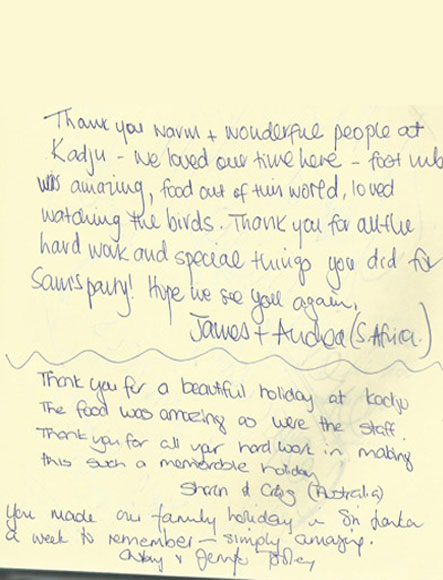 Thank you warm + wonderful people at
Kadju - we loved our time here - foot rub
was amazing, food out of this world, loved
watching the birds. Thank you for all the
hard work and special things you did for
Sam's party! Hope we see you again,
James + Andrea (S. Africa.)
Thank you for a beautiful holiday at Kadju
The food was amazing as were the staff.
Thank you for all your hard work in making
this such a memorable holiday
Sharon & Craig (Australia)
You made our family holiday in Sri Lanka
a week to remember - simply amazing.